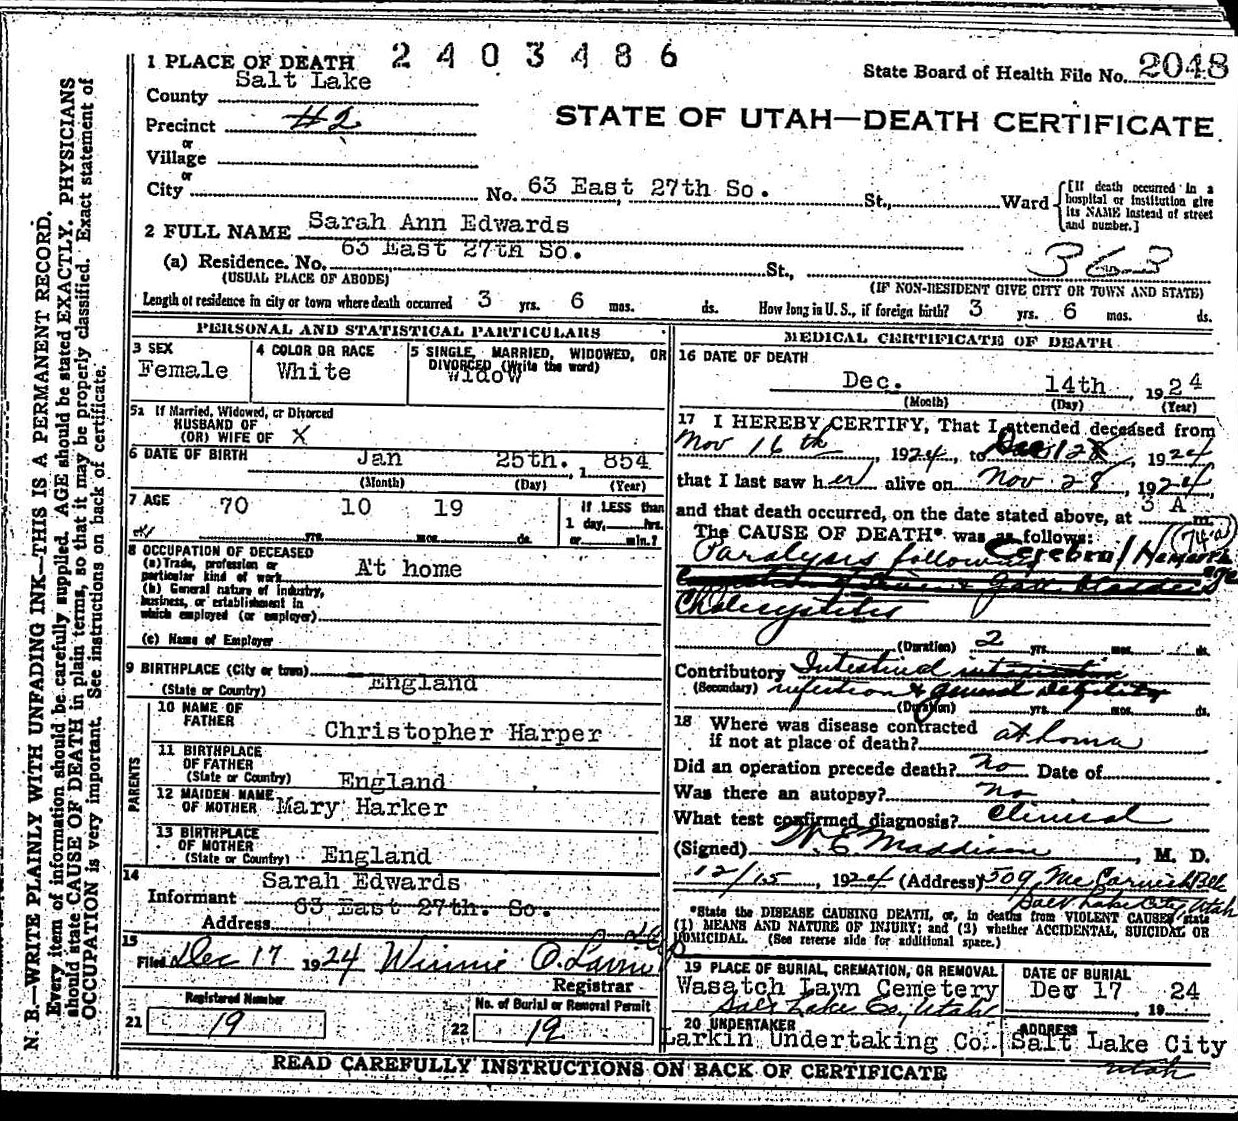 N. B.—WRITE PLAINLY WITH UNFADING INK—THIS IS A PERMANENT RECORD.
Every item of information should be carefully supplied. AGE should be stated EXACTLY. PHYSICIANS
should state CAUSE OF DEATH in plain terms, so that it may be properly classified. Exact statement of
OCCUPATION is very important. See instructions on back of certificate.
2403486
1 PLACE OF DEATH
State Board of Health File No. 2048
County Salt Lake
STATE OF UTAH—DEATH CERTIFICATE
Precinct #2
or
Village
or
City No. 63 East 27th So. St., Ward
[If death occurred in a
hospital or institution give
its NAME instead of street
and number.]
2 FULL NAME Sarah Ann Edwards
363
(a) Residence. No. 63 East 27th So. St.,
(USUAL PLACE OF ABODE)
(IF NON-RESIDENT GIVE CITY OR TOWN AND STATE)
Length of residence in city or town where death occurred 3 yrs. 6 mos. ds. How long in U. S., if foreign birth? 3 yrs. 6 mos. ds.
PERSONAL AND STATISTICAL PARTICULARS
3 SEX
Female
4 COLOR OR RACE
White
5 SINGLE, MARRIED, WIDOWED, OR
DIVORCED (Write the word)
Widow
5a If Married, Widowed, or Divorced
HUSBAND OF
(OR) WIFE OF X
6 DATE OF BIRTH
Jan 25th. 1 854
(Month) (Day) (Year)
7 AGE 70 10 19
yrs. mos. ds.
If LESS than
1 day, hrs.
or min.?
8 OCCUPATION OF DECEASED
(a) Trade, profession or
particular kind of work At home
(b) General nature of industry,
business, or establishment in
which employed (or employer)
(c) Name of Employer
9 BIRTHPLACE (City or town)
(State or Country) England
PARENTS
10 NAME OF
FATHER
Christopher Harper
11 BIRTHPLACE
OF FATHER
(State or Country) England
12 MAIDEN NAME
OF MOTHER Mary Harker
13 BIRTHPLACE
OF MOTHER
(State or Country) England
14
Informant Sarah Edwards
Address 63 East 27th. So.
15
Filed Dec 17 1924 Winnie O.
Registrar
Registered Number
21 19
No. of Burial or Removal Permit
22 19
MEDICAL CERTIFICATE OF DEATH
16 DATE OF DEATH
Dec. 14th 1924
(Month) (Day) (Year)
17 I HEREBY CERTIFY, That I attended deceased from
Nov 16th, 1924, to Dec 12, 1924
that I last saw her alive on Nov 28, 1924,
and that death occurred, on the date stated above, at 3 A m.
The CAUSE OF DEATH* was as follows: (74a)
Paralysis following Cerebral Hemorrhage
Cholecystitis
(Duration) 2 yrs. mos. ds.
Contributory Intestinal
(Secondary) infection & general debility
(Duration) yrs. mos. ds.
18 Where was disease contracted
if not at place of death? at home
Did an operation precede death? No Date of
Was there an autopsy? No
What test confirmed diagnosis? Clinical
(Signed) W. E. Maddison, M. D.
12/15, 1924 (Address) 509 McCornick Bld
Salt Lake City, Utah
*State the DISEASE CAUSING DEATH, or, in deaths from VIOLENT CAUSES, state
(1) MEANS AND NATURE OF INJURY; and (2) whether ACCIDENTAL, SUICIDAL OR
HOMICIDAL. (See reverse side for additional space.)
19 PLACE OF BURIAL, CREMATION, OR REMOVAL
Wasatch Lawn Cemetery
Salt Lake Co, Utah
DATE OF BURIAL
Dec 17 1924
20 UNDERTAKER
Larkin Undertaking Co.
ADDRESS
Salt Lake City
Utah
READ CAREFULLY INSTRUCTIONS ON BACK OF CERTIFICATE